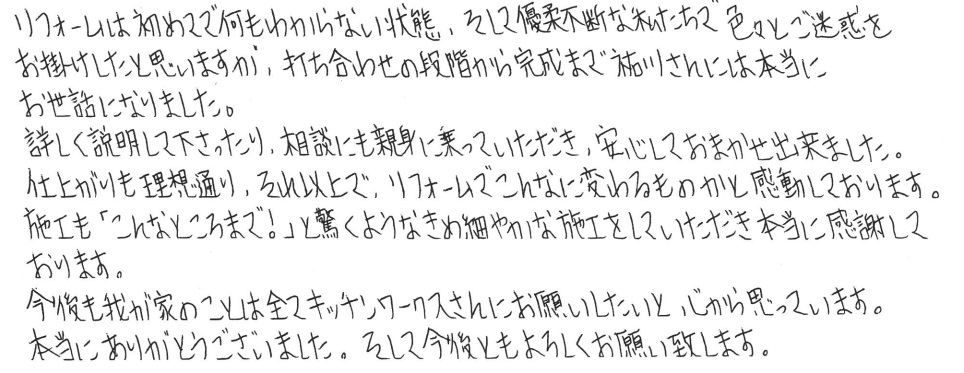 リフォームは初めてで何もわからない状態、そして優柔不断な私たちで色々とご迷惑を
お掛けしたと思いますが、打ち合わせの段階から完成まで祐川さんには本当に
お世話になりました。
詳しく説明して下さったり、相談にも親身に乗っていただき、安心しておまかせ出来ました。
仕上がりも理想通り、それ以上で、リフォームでこんなに変わるものかと感動しております。
施工も「こんなところまで！」と驚くようなきめ細やかな施工をしていただき本当に感謝して
おります。
今後も我が家のことは全てキッチンワークスさんにお願いしたいと心から思っています。
本当にありがとうございました。そして今後ともよろしくお願い致します。